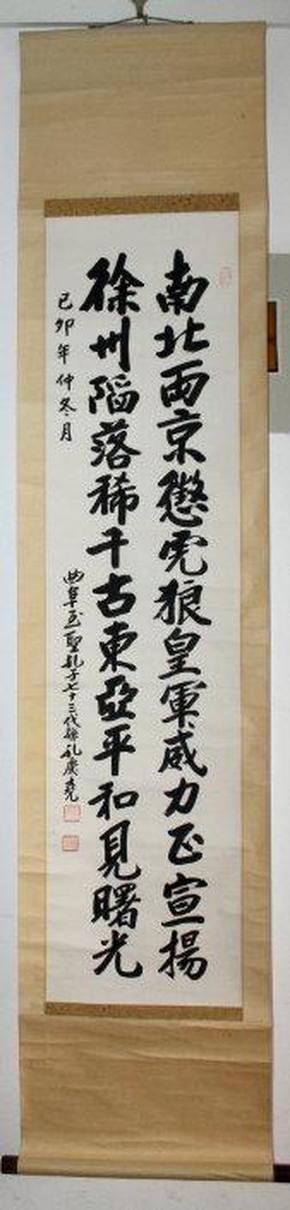 南北两京懲虎狼皇軍威力正宣揚
徐州陷落稀千古東亞平和見曙光
己卯年仲冬月
曲阜至聖孔子七十三代孫孔慶堯